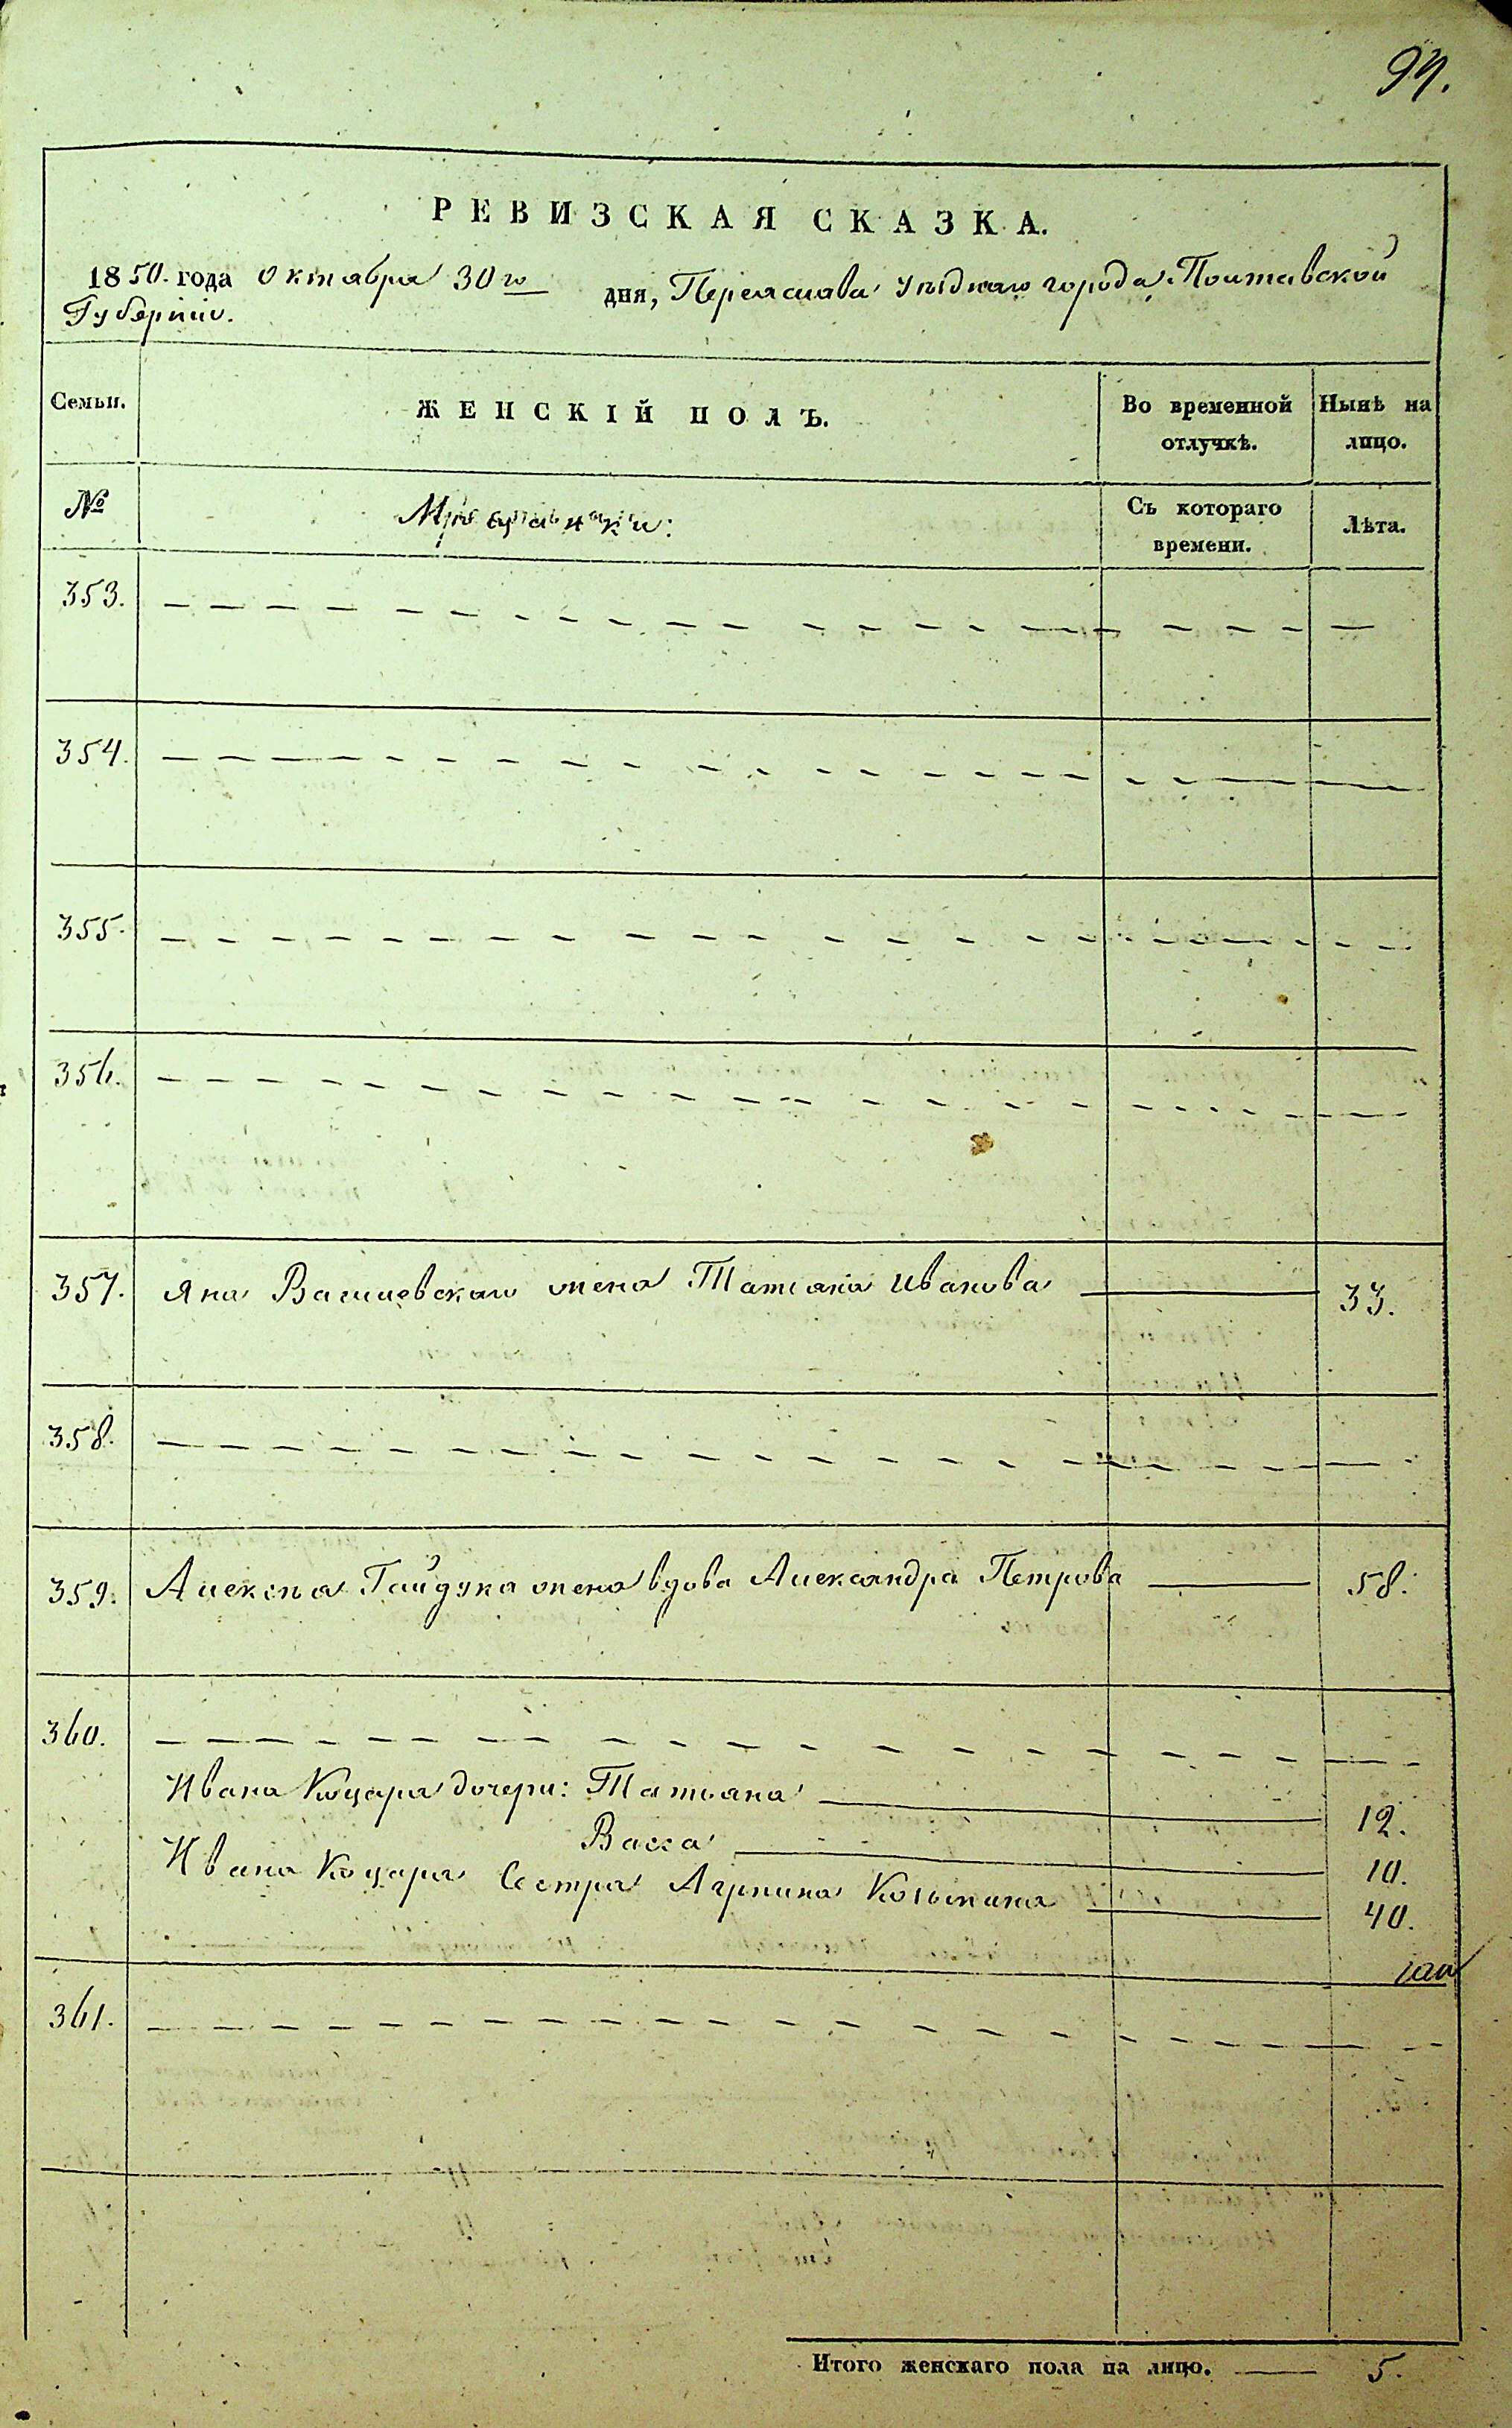 99.
РЕВИЗСКАЯ СКАЗКА.
1850. года Октября 30го дня, Переяслава уѣзднаго города Полтавской
Губерніи.
Семьи. ЖЕНСКІЙ ПОЛЪ. Во временной отлучкѣ. Нынѣ на лицо.
№ Мѣщанки: Съ котораго времени. Лѣта.
353.
354.
355.
356.
357. Яна жена Татіана Иванова 33.
358.
359. Алексѣя Гайдука жена вдова Александра Петрова 58.
360.
Ивана Коцаря дочери: Татіана 12.
Васса 10.
Ивана Коцаря Сестра Агрипина 40.
361.
Итого женскаго пола на лицо. 5.